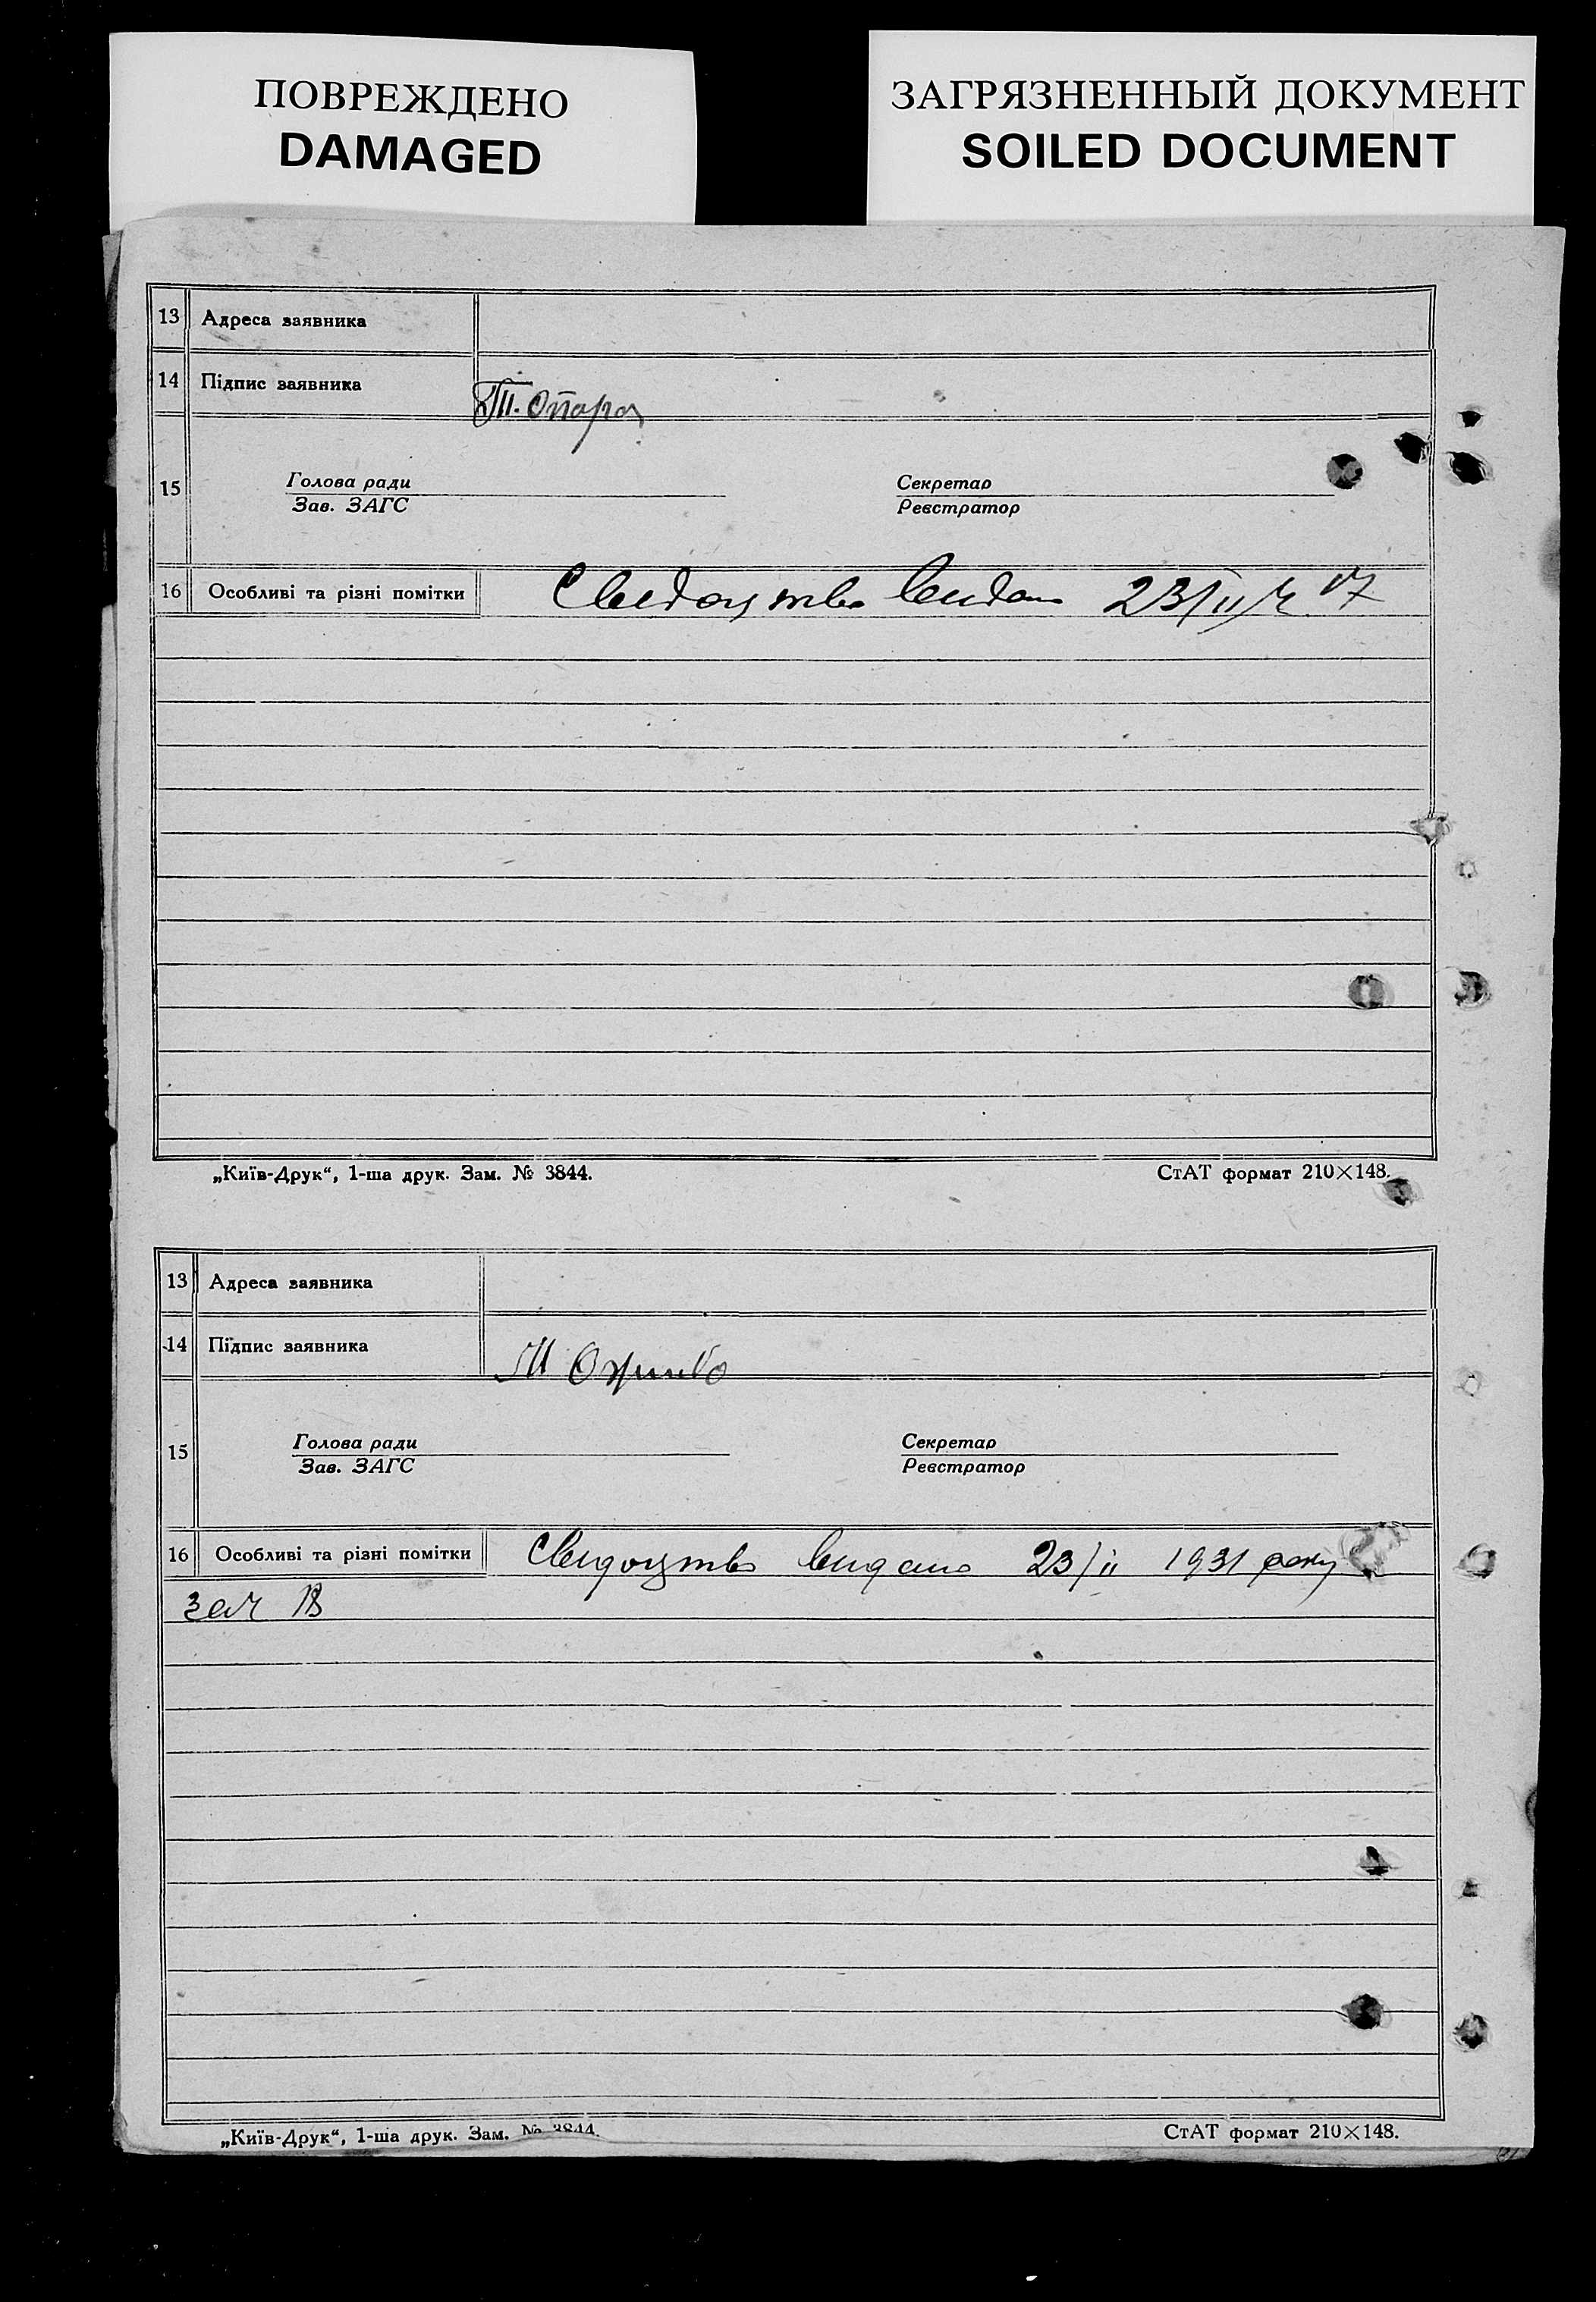 ПОВРЕЖДЕНО
DAMAGED
ЗАГРЯЗНЕННЫЙ ДОКУМЕНТ
SOILED DOCUMENT
13 Адреса заявника
14 Підпис заявника Т. Опара
15 Голова ради Секретар
Зав. ЗАГС Реєстратор
16 Особливі та різні помітки Свидоцтво видано 23/II
„Київ-Друк“, 1-ша друк. Зам. № 3844. СтАТ формат 210×148.
13 Адреса заявника
14 Підпис заявника
15 Голова ради Секретар
Зав. ЗАГС Реєстратор
16 Особливі та різні помітки Свидоцтво видано 23/II 1931 року
„Київ-Друк“, 1-ша друк. Зам. № 3844. СтАТ формат 210×148.